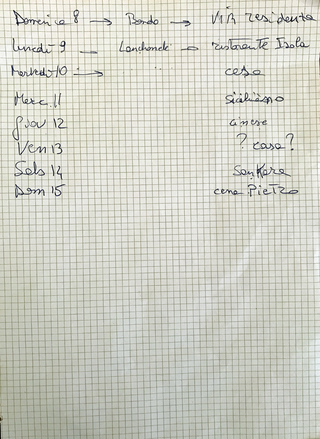 Domenica 8 → Bondo → VIA residenta
lunedì 9 — Lanchonete → ristorante Isola
Martedì 10 → " casa
Merc. 11 siciliano
Giov 12 cinese
Ven 13 ? casa?
Sab 14 Sankara
Dom 15 cena Pietro